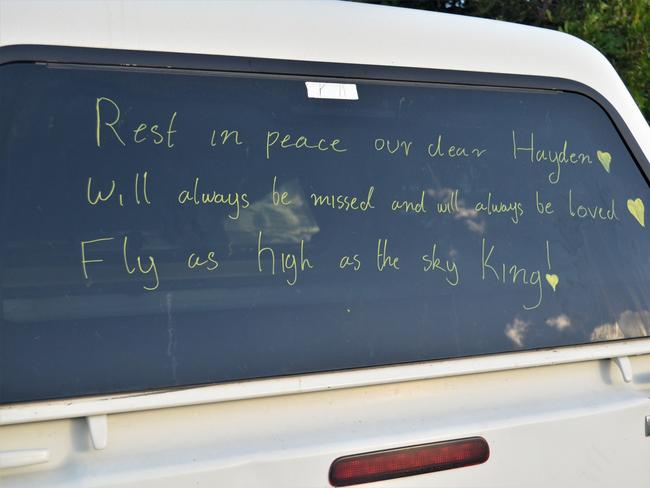 Rest in peace our dear Hayden
Will always be missed and will always be loved
Fly as high as the sky King!